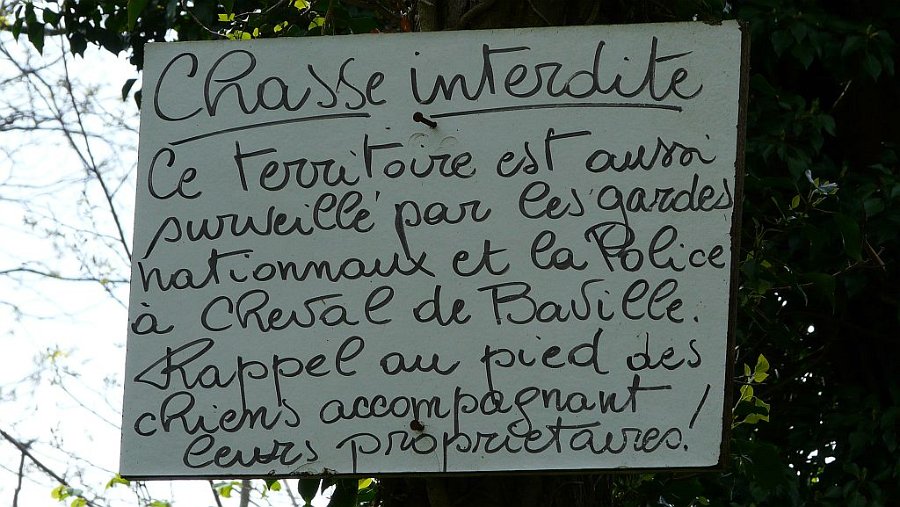 Chasse interdite
Ce territoire est aussi
surveillé par les gardes
nationnaux et la Police
à cheval de Baville.
Rappel au pied des
chiens accompagnant
leurs propriétaires!